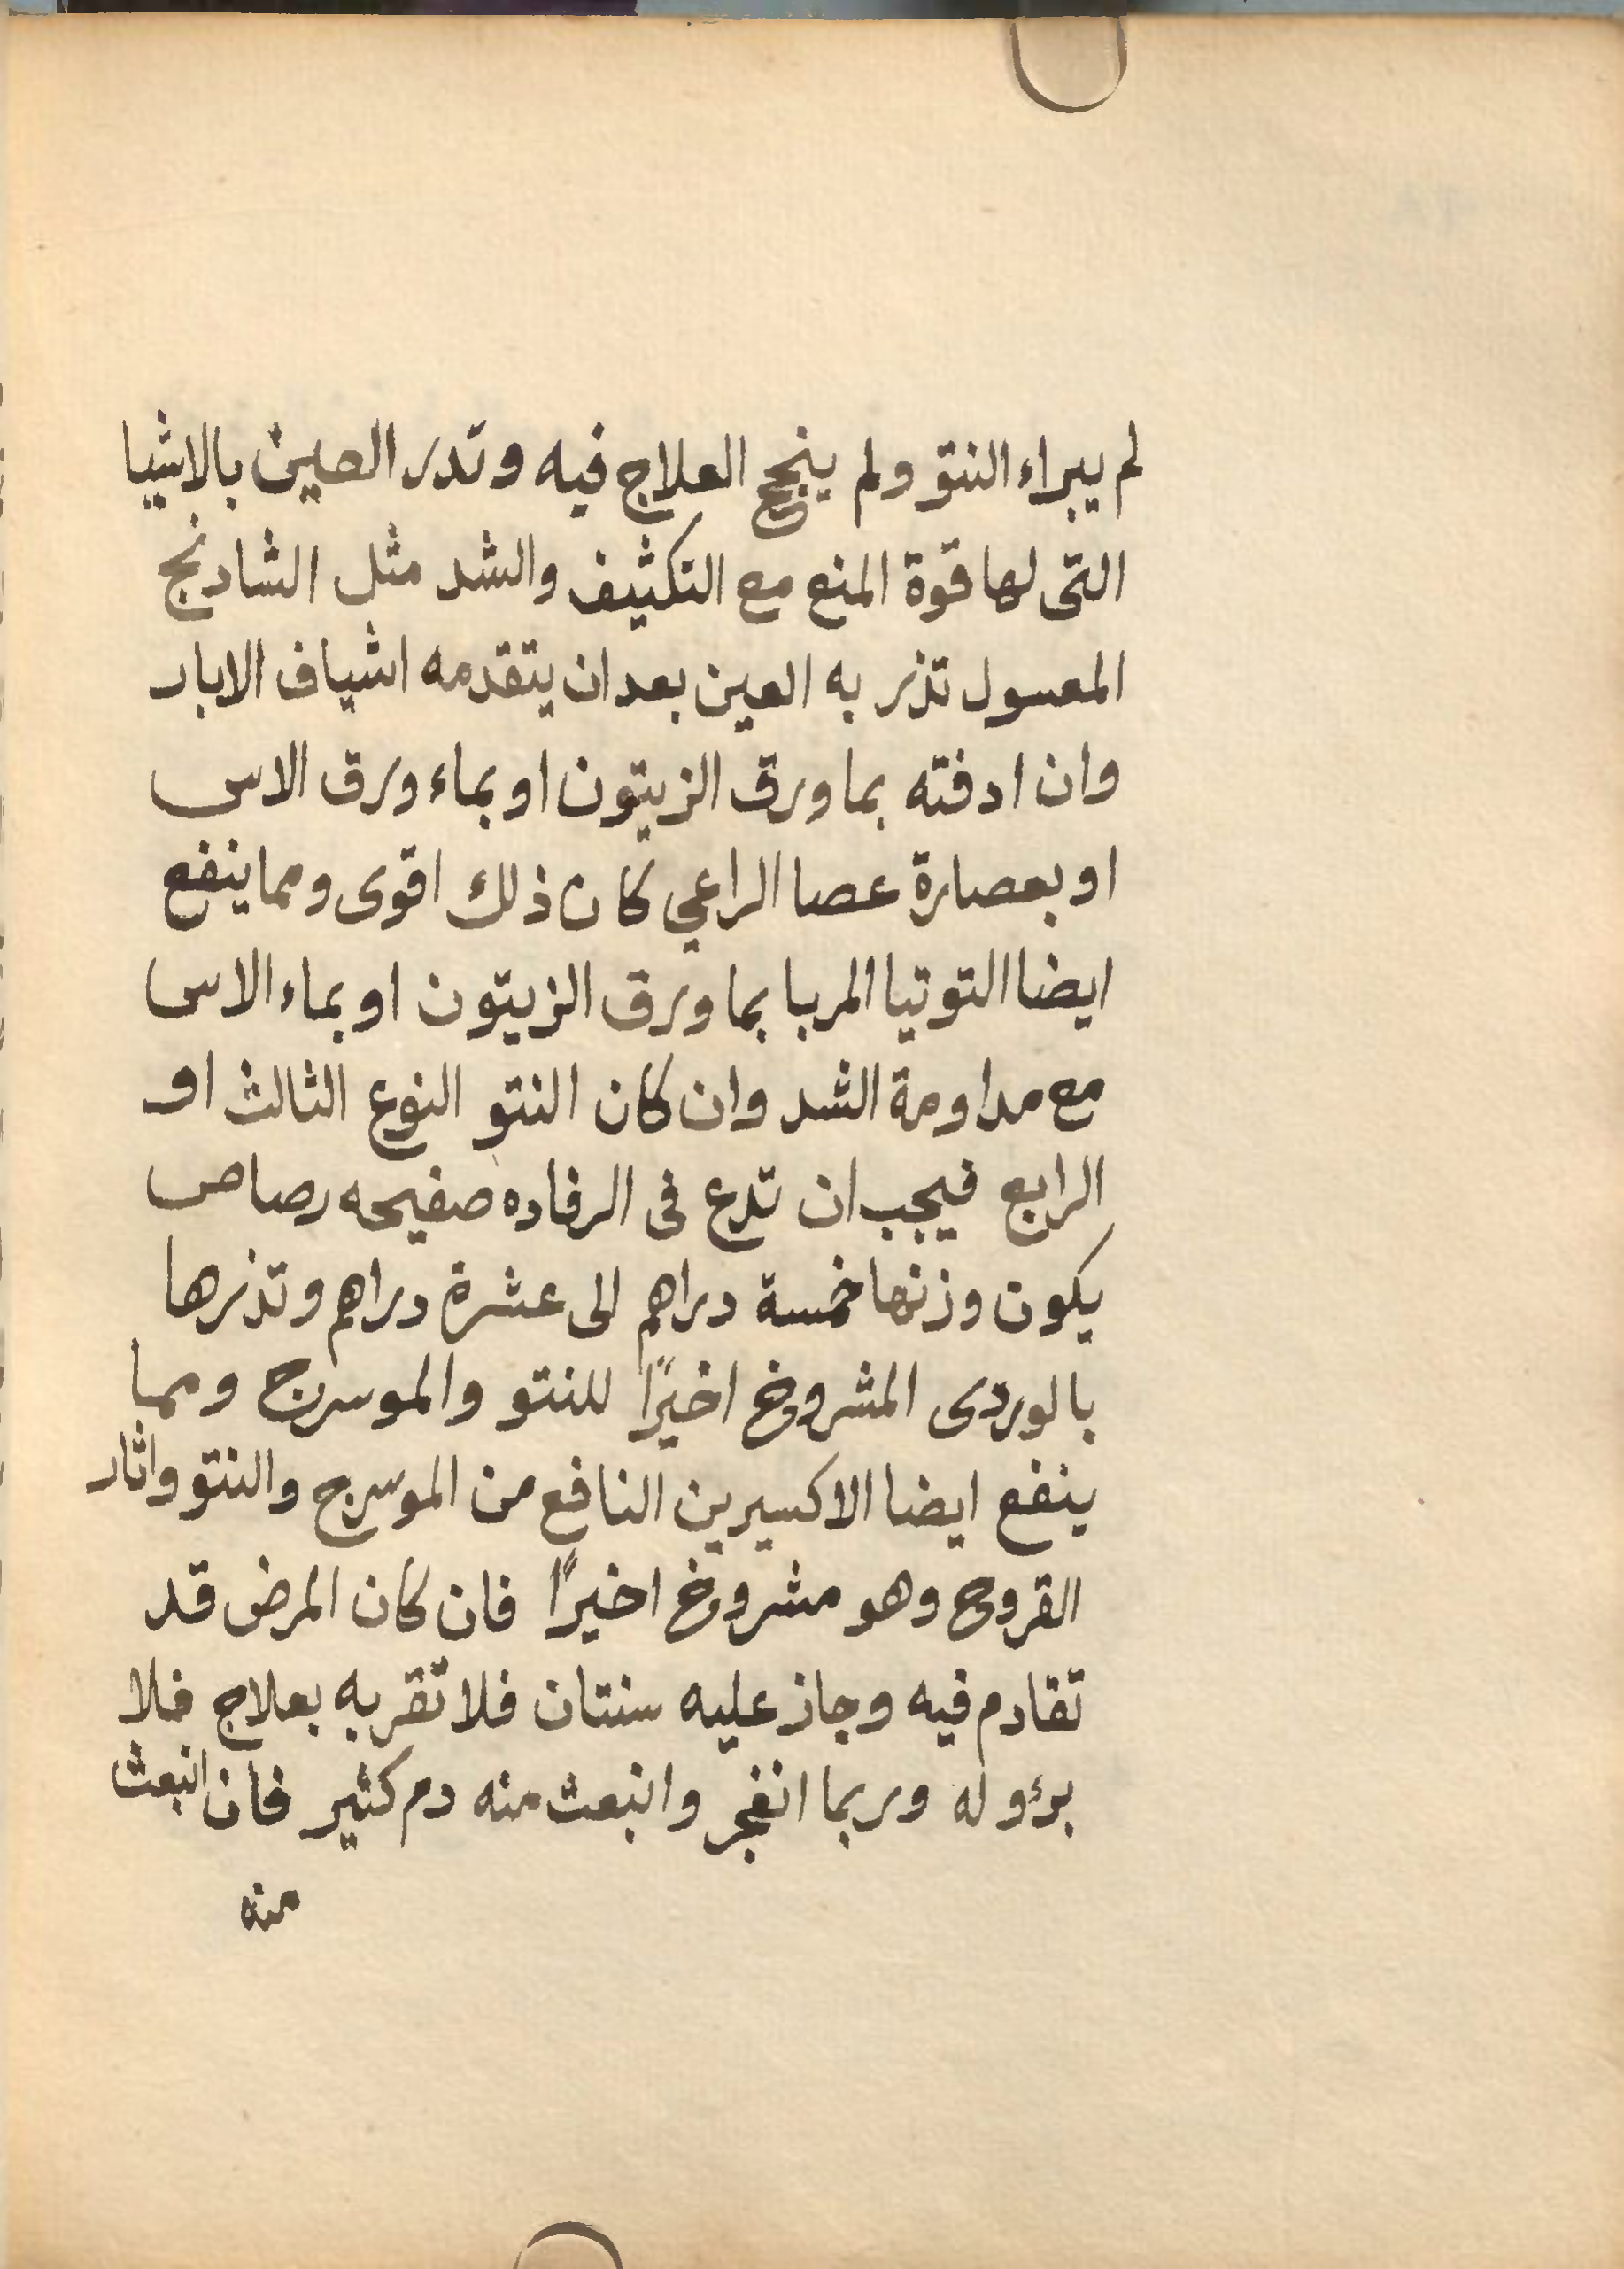 لم يبراء النتو ولم ينجع العلاج فيه وتدر العين بالاشيا
التى لها قوة المنع مع التكثيف والشد مثل الشادنج
المعسول تذر به العين بعد ان يتقدمه اشياف الابار
وان ادفته بما ورق الزيتون او بماء ورق الاس
او بعصارة عصا الراعي كان ذلك اقوى ومما ينفع
ايضا التوتيا المربا بما ورق الزيتون او بماء الاس
مع مداومة الشد وان كان النتو النوع الثالث او
الرابع فيجب ان تدع فى الرفاده صفيحه رصاص
يكون وزنها خمسة دراهم الى عشرة دراهم وتذرها
بالوردى المشروخ اخيرًا للنتو والموسرج ومما
ينفع ايضا الاكسيرين النافع من الموسرج والنتو واثار
القروح وهو مشروخ اخيرًا فان كان المرض قد
تقادم فيه وجاز عليه سنتان فلا تقربه بعلاج فلا
برؤ له وربما انفجر وانبعث منه دم كثير فان انبعث
منه